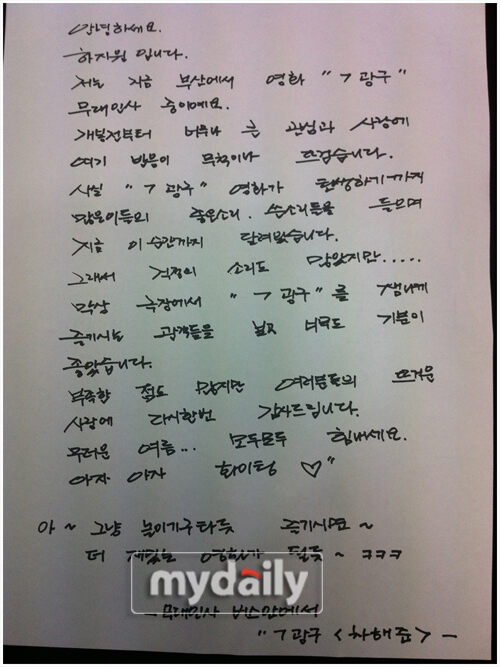 안녕하세요.
하지원 입니다.
저는 지금 부산에서 영화 "7 광구"
무대인사 중이에요.
개봉전부터 너무나 큰 관심과 사랑에
여기 반응이 무척이나 뜨겁습니다.
사실 "7 광구" 영화가 탄생하기까지
많은이들의 좋은소리. 쓴소리들을 들으며
지금 이 순간까지 달려왔습니다.
그래서 걱정의 소리도 많았지만.....
막상 극장에서 "7 광구"를 잼나게
즐기시는 관객들을 보고 너무도 기분이
좋았습니다.
부족한 점도 많지만 여러분들의 뜨거운
사랑에 다시한번 감사드립니다.
무더운 여름... 모두모두 힘내세요.
아자 아자 화이팅 ♡"
아~ 그냥 놀이기구타듯 즐기시면~
더 재밌는 영화가 될듯~ ㅋㅋㅋ
mydaily
- 무대인사 버스안에서
"7 광구 <차해준> -